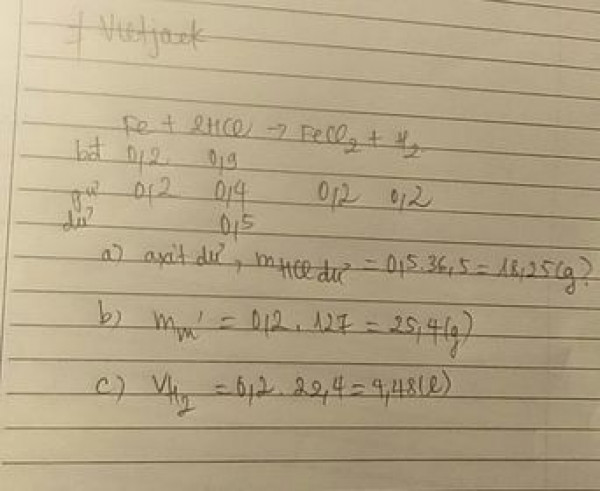 # Vietjack
Fe + 2HCl → FeCl₂ + H₂
bđ 0,2 0,9
pư 0,2 0,4 0,2 0,2
dư 0,5
a) axit dư, mHCl dư = 0,5.36,5 = 18,25(g)
b) mm' = 0,2.127 = 25,4(g)
c) VH₂ = 0,2.22,4 = 4,48(l)